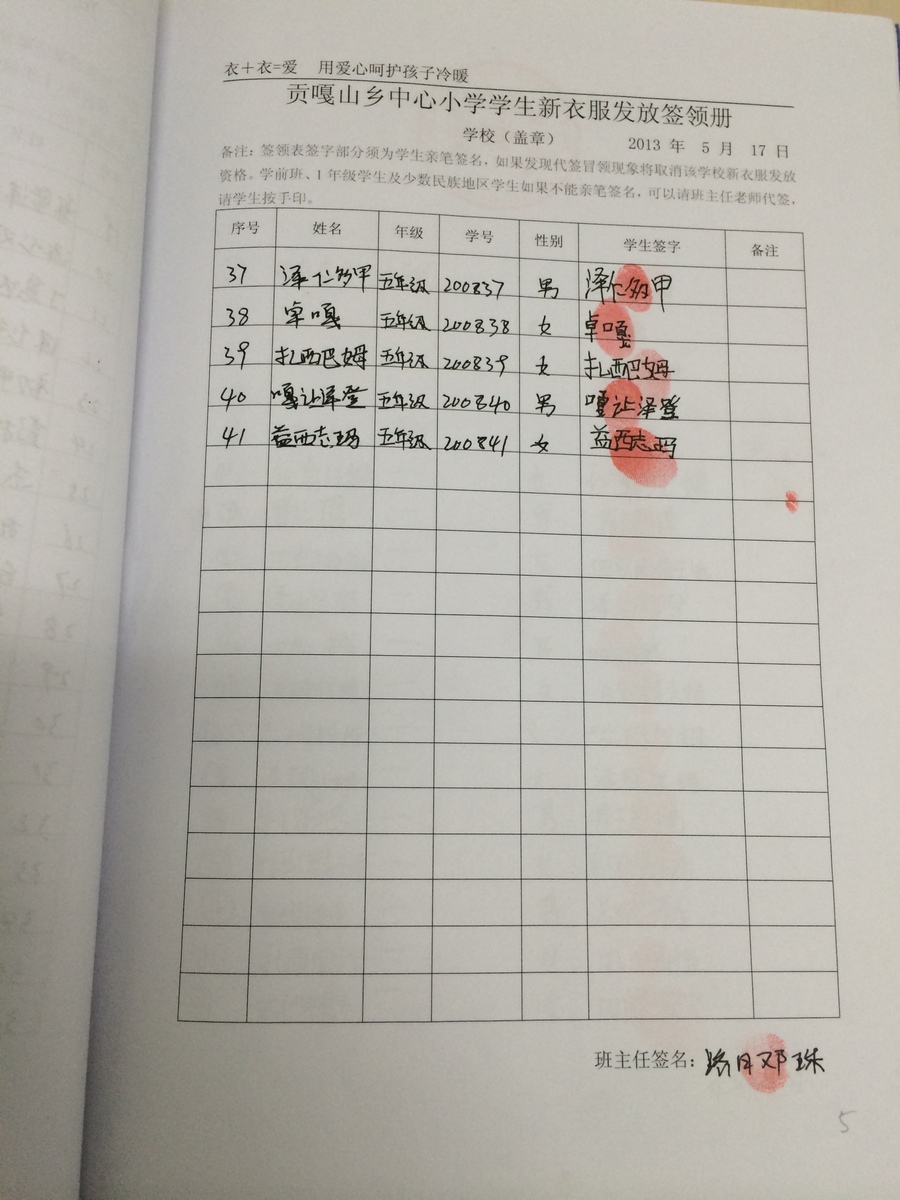 衣+衣=爱 用爱心呵护孩子冷暖
贡嘎山乡中心小学学生新衣服发放签领册
学校（盖章） 2013 年 5 月 17 日
备注：签领表签字部分须为学生亲笔签名，如果发现代签冒领现象将取消该学校新衣服发放
资格。学前班、1 年级学生及少数民族地区学生如果不能亲笔签名，可以请班主任老师代签，
请学生按手印。
序号 姓名 年级 学号 性别 学生签字 备注
37 泽仁多甲 五年级 200837 男 泽仁多甲
38 卓嘎 五年级 200838 女 卓嘎
39 扎西巴姆 五年级 200839 女 扎西巴姆
40 嘎让泽登 五年级 200840 男 嘎让泽登
41 益西志玛 五年级 200841 女 益西志玛
班主任签名： 邓珠
5